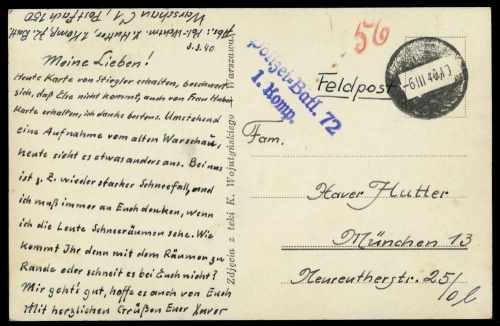 Abs.: Pol.-Wachtm. X. Hutter, 1. Komp. 72. Batl.
Warschau C1, Postfach 150
3.3.40
Meine Lieben!
Heute Karte von Stiegler erhalten, beschwert
sich, daß Else nicht kommt, auch von Frau Huber
Karte erhalten, ich danke bestens. Umstehend
eine Aufnahme vom alten Warschau,
heute sieht es etwas anders aus. Bei uns
ist z. Z. wieder starker Schneefall, und
ich muß immer an Euch denken, wenn
ich die Leute Schneeräumen sehe. Wie
kommt Ihr denn mit dem Räumen zu
Rande oder schneit es bei Euch nicht?
Mir geht's gut, hoffe es auch von Euch
Mit herzlichen Grüßen Euer Xaver
Zdjęcia z teki K. Wojutyńskiego Warszawa
56
Polizei-Batl. 72
1. Komp.
Feldpost
-6III 40
Fam.
Xaver Hutter
München 13
Neureutherstr. 25/
0 l